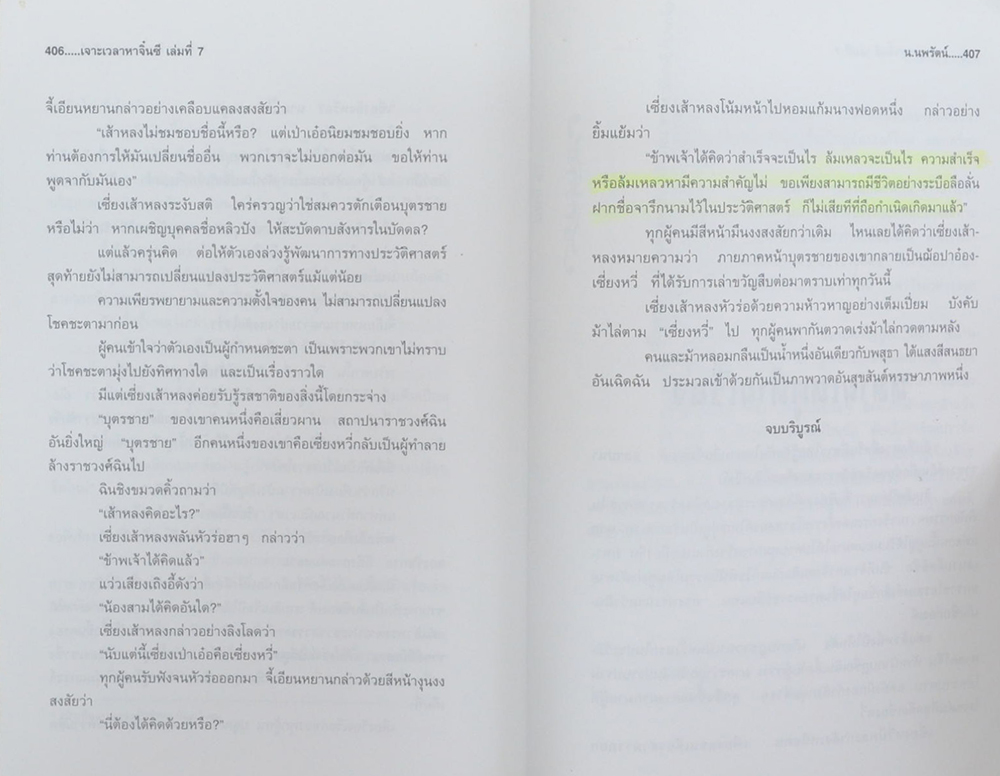 406.....เจาะเวลาหาจิ๋นซี เล่มที่ 7
จี้เอียนหยานกล่าวอย่างเคลือบแคลงสงสัยว่า
"เส้าหลงไม่ชมชอบชื่อนี้หรือ? แต่เป่าเอ๋อนิยมชมชอบยิ่ง หาก
ท่านต้องการให้มันเปลี่ยนชื่ออื่น พวกเราจะไม่บอกต่อมัน ขอให้ท่าน
พูดจากับมันเอง"
เซี่ยงเส้าหลงระงับสติ ใคร่ครวญว่าใช่สมควรตักเตือนบุตรชาย
หรือไม่ว่า หากเผชิญบุคคลชื่อหลิวปัง ให้สะบัดดาบสังหารในบัดดล?
แต่แล้วครุ่นคิด ต่อให้ตัวเองล่วงรู้พัฒนาการทางประวัติศาสตร์
สุดท้ายยังไม่สามารถเปลี่ยนแปลงประวัติศาสตร์แม้แต่น้อย
ความเพียรพยายามและความตั้งใจของคน ไม่สามารถเปลี่ยนแปลง
โชคชะตามาก่อน
ผู้คนเข้าใจว่าตัวเองเป็นผู้กำหนดชะตา เป็นเพราะพวกเขาไม่ทราบ
ว่าโชคชะตามุ่งไปยังทิศทางใด และเป็นเรื่องราวใด
มีแต่เซี่ยงเส้าหลงค่อยรับรู้รสชาติของสิ่งนี้โดยกระจ่าง
"บุตรชาย" ของเขาคนหนึ่งคือเสี่ยวผาน สถาปนาราชวงศ์ฉิน
อันยิ่งใหญ่ "บุตรชาย" อีกคนหนึ่งของเขาคือเซี่ยงหวี่กลับเป็นผู้ทำลาย
ล้างราชวงศ์ฉินไป
ฉินชิงขมวดคิ้วถามว่า
"เส้าหลงคิดอะไร?"
เซี่ยงเส้าหลงพลันหัวร่อฮาๆ กล่าวว่า
"ข้าพเจ้าได้คิดแล้ว"
แว่วเสียงเถิงอี้ดังว่า
"น้องสามได้คิดอันใด?"
เซี่ยงเส้าหลงกล่าวอย่างลิงโลดว่า
"นับแต่นี้เซี่ยงเป่าเอ๋อคือเซี่ยงหวี่"
ทุกผู้คนรับฟังจนหัวร่อออกมา จี้เอียนหยานกล่าวด้วยสีหน้างุนงง
สงสัยว่า
"นี่ต้องได้คิดด้วยหรือ?"
น.นพรัตน์.....407
เซี่ยงเส้าหลงโน้มหน้าไปหอมแก้มนางฟอดหนึ่ง กล่าวอย่าง
ยิ้มแย้มว่า
"ข้าพเจ้าได้คิดว่าสำเร็จจะเป็นไร ล้มเหลวจะเป็นไร ความสำเร็จ
หรือล้มเหลวหามีความสำคัญไม่ ขอเพียงสามารถมีชีวิตอย่างระบือลือลั่น
ฝากชื่อจารึกนามไว้ในประวัติศาสตร์ ก็ไม่เสียทีที่ถือกำเนิดเกิดมาแล้ว"
ทุกผู้คนมีสีหน้ามึนงงสงสัยกว่าเดิม ไหนเลยได้คิดว่าเซี่ยงเส้า-
หลงหมายความว่า ภายภาคหน้าบุตรชายของเขากลายเป็นฌ้อปาอ๋อง-
เซี่ยงหวี่ ที่ได้รับการเล่าขวัญสืบต่อมาตราบเท่าทุกวันนี้
เซี่ยงเส้าหลงหัวร่อด้วยความห้าวหาญอย่างเต็มเปี่ยม บังคับ
ม้าไล่ตาม "เซี่ยงหวี่" ไป ทุกผู้คนพากันตวาดเร่งม้าไล่กวดตามหลัง
คนและม้าหลอมกลืนเป็นน้ำหนึ่งอันเดียวกับพสุธา ใต้แสงสีสนธยา
อันเฉิดฉัน ประมวลเข้าด้วยกันเป็นภาพวาดอันสุขสันต์หรรษาภาพหนึ่ง
จบบริบูรณ์